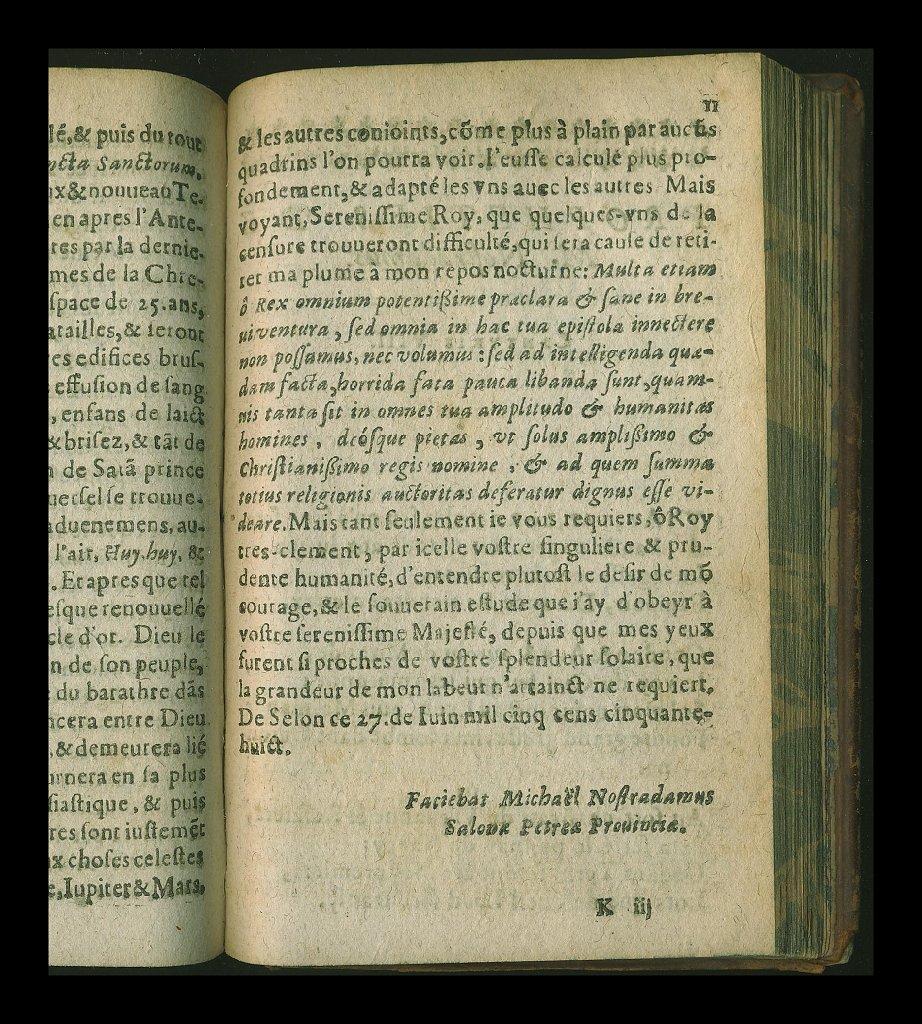 lé,& puis du tout
ncta Sanctorum,
ux & nouueau Te-
en apres l'Ante-
res par la dernie-
mes de la Chre-
space de 25.ans,
atailles,& seront
es edifices brus-
effusion de sang
, enfans de laict
& brisez,& tāt de
n de Satā prince
uersel se trouue-
aduenemens, au-
l'air, Huy.huy, &
. Et apres que tel
esque renouuellé
cle d'or. Dieu le
n de son peuple,
du barathre dās
ncera entre Dieu
, & demeurera lié
urnera en sa plus
siastique, & puis
res sont iustemēt
ux choses celestes
e, Iupiter & Mars,
11
& les autres conioints, cōme plus à plain par aucūs
quadrins l'on pourra voir. I'eusse calculé plus pro-
fondement, & adapté les vns auec les autres Mais
voyant, Serenissime Roy, que quelques-vns de la
censure trouueront difficulté, qui sera cause de reti-
rer ma plume à mon repos nocturne: Multa etiam
ô Rex omnium potentißime præclara & sane in bre-
ui ventura, sed omnia in hac tua epistola innectere
non possumus, nec volumus: sed ad intelligenda quæ-
dam facta, horrida fata pauca libanda sunt, quam-
uis tanta sit in omnes tua amplitudo & humanitas
homines, deósque pietas, vt solus amplißimo &
Christianißimo regis nomine, & ad quem summa
totius religionis auctoritas deferatur dignus esse vi-
deare. Mais tant seulement ie vous requiers, ô Roy
tres-clement, par icelle vostre singuliere & pru-
dente humanité, d'entendre plutost le desir de mō
courage, & le souuerain estude que i'ay d'obeyr à
vostre serenissime Majesté, depuis que mes yeux
furent si proches de vostre splendeur solaire, que
la grandeur de mon labeur n'attainct ne requiert.
De Selon ce 27. de Iuin mil cinq cens cinquante-
huict.
Faciebat Michaël Nostradamus
Salonæ Petreæ Prouinciæ.
K iij